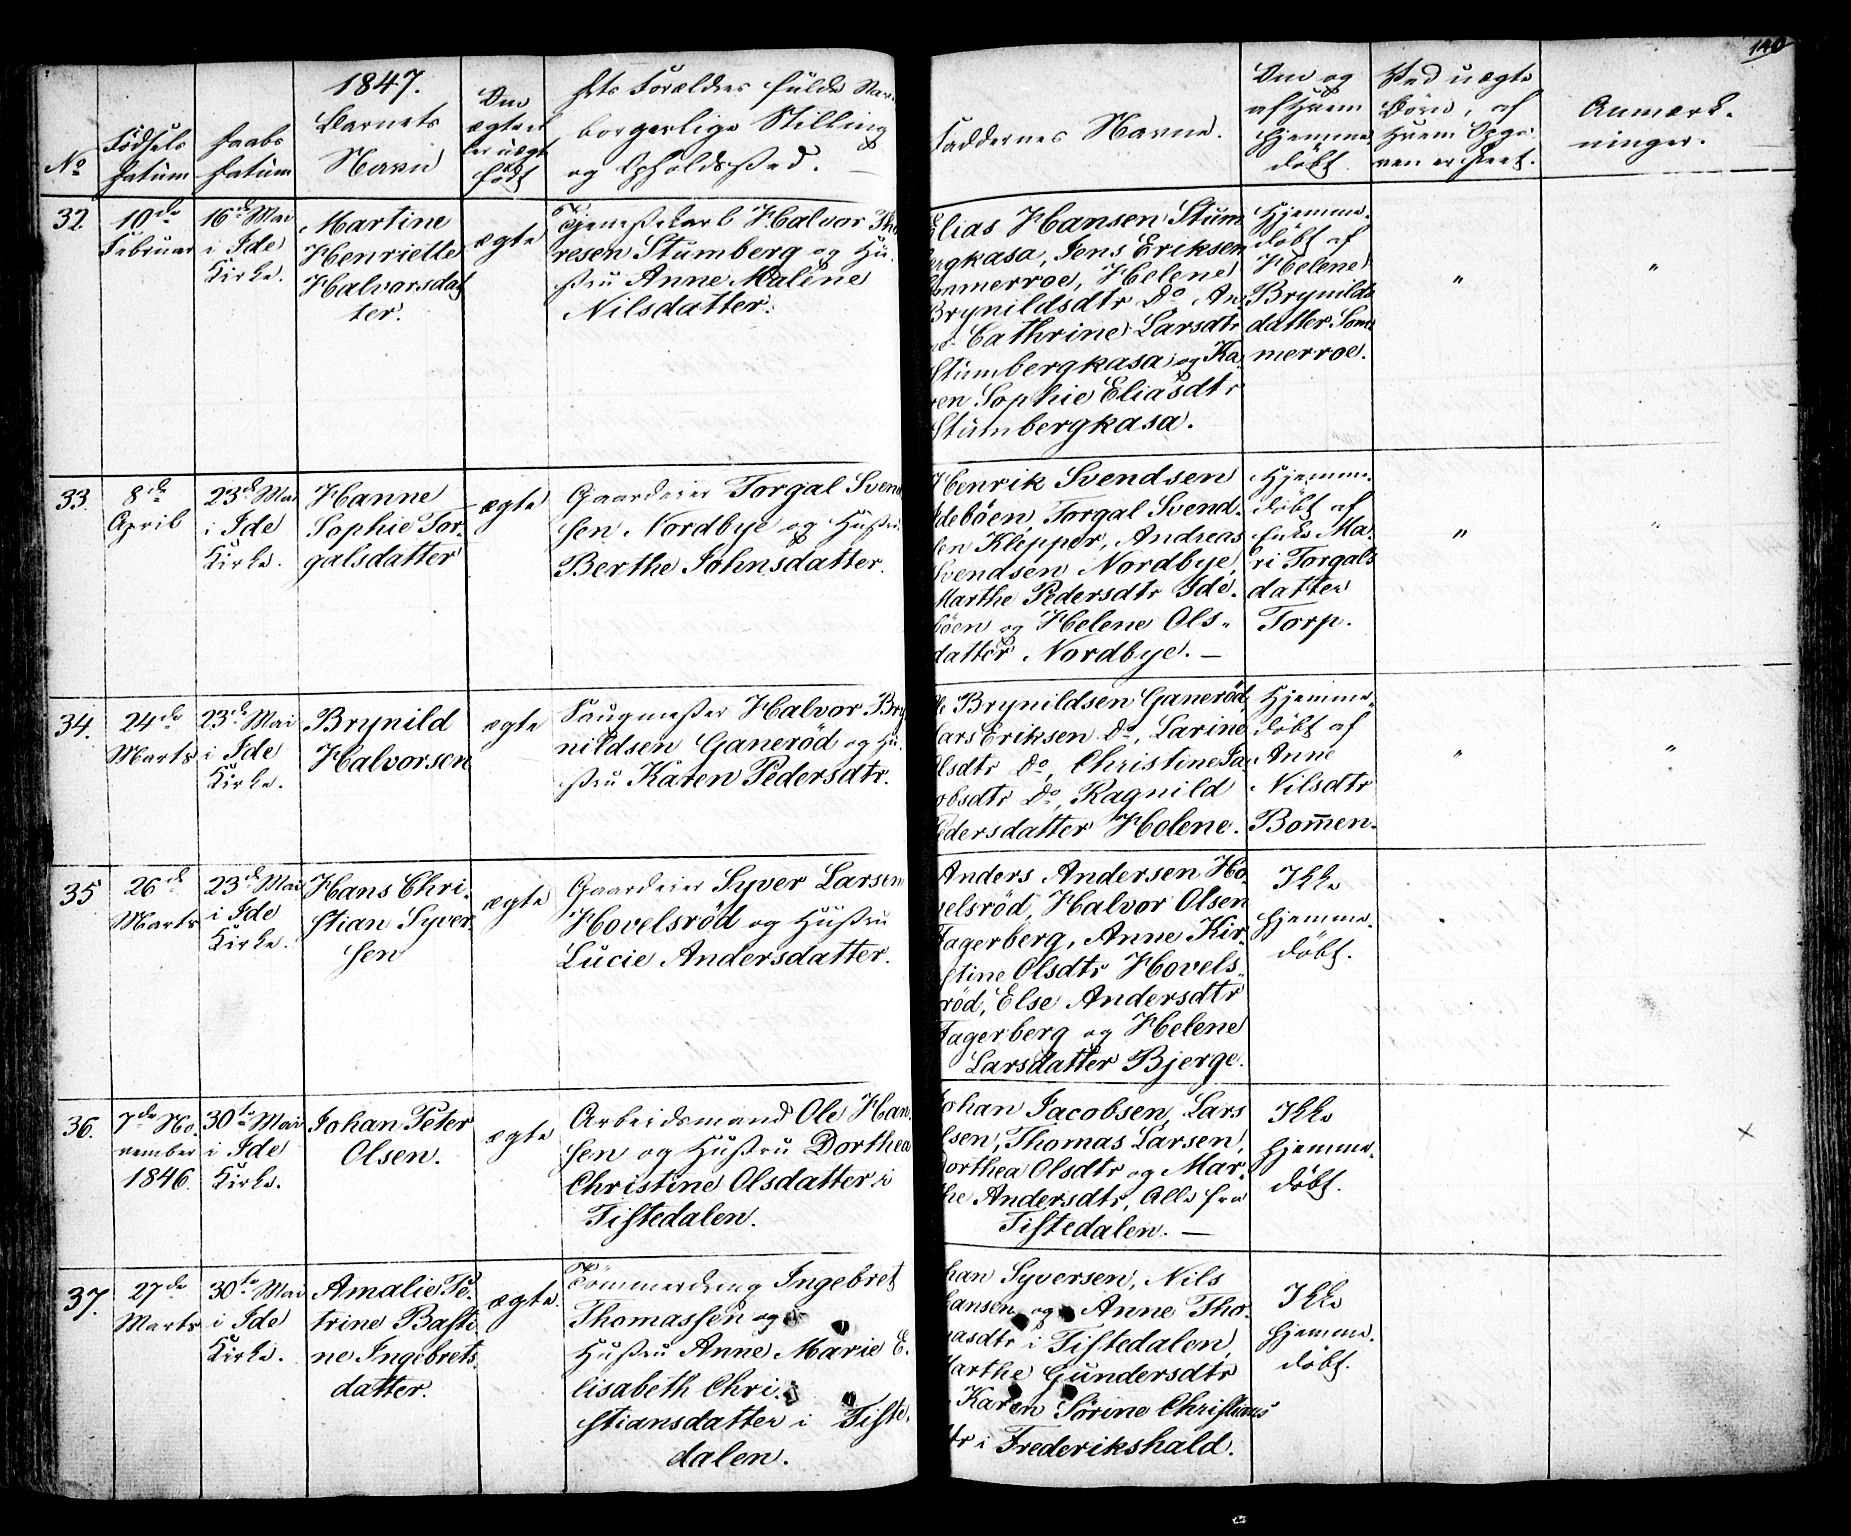 140
1847.
No
Födsels
Datum
Daabs
Datum
Barnets
Navn
Om
ægte el
ler uægte
født
Dets Forældres fulde Nav
borgerlige Stilling
og Opholdssted. —
Faddernes Navne.
Om og
af Hvem
hjemme
döbt.
Ved uægte
Börn, af
Hvem Opga
ven er skeet.
Anmærk-
ninger.
32.
10de
Februar
16de Mai
i Ide
Kirke.
Martine
Henriette
Halvorsdat
ter.
ægte
Tjenestekarl Halvor Tho
resen Stumberg og Hu-
stru Anne Malene
Nilsdatter.
Elias Hansen Stum
ergkasa, Jens Eriksen
ommerroe, Helene
Brynildsdtr Do An-
ne Cathrine Larsdtr
Stumbergkasa og Ka-
ren Sophie Eliasdtr
Stumbergkasa.
Hjemme-
döbt af
Helene
Brynilds
datter Som
merroe.
"
"
33.
8de
April
23de Mai
i Ide
Kirke.
Hanne
Sophie Tor-
galsdatter
ægte
Gaardeier Torgal Svend
sen Nordbye og Hustru
Berthe Johnsdatter.
Henrik Svendsen
Idebøen, Torgal Svend-
sen Klepper, Andreas
Svendsen Nordbye,
Marthe Pedersdtr Ide-
böen og Helene Ols-
datter Nordbye. —
Hjemme-
döbt af
Enke Ma-
ri Torgals
datter
Torp.
"
"
34.
24de
Marts
23de Mai
i Ide
Kirke.
Brynild
Halvorsen
ægte
Saugmester Halvor Bry
nildsen Ganeröd og Hu-
stru Karen Pedersdtr.
le Brynildsen Ganeröd,
Lars Eriksen Do, Larine
Olsdtr Do, Christine Ja-
obsdtr Do, Ragnild
edersdatter Holene.
Hjemme-
döbt af
Anne
Nilsdtr
Bom̄en.
"
"
35
26de
Marts
23de Mai
i Ide
Kirke.
Hans Chri-
stian Syver
sen
ægte
Gaardeier Syver Larsen
Hovelsröd og Hustru
Lucie Andersdatter.
Anders Andersen Ho-
velsröd, Halvor Olsen
Fagerberg, Anne Kir-
stine Olsdtr Hovels-
röd, Else Andersdtr
Fagerberg og Helene
Larsdatter Bjerge.
Ikke
hjemme-
döbt.
36.
7de No-
vember
1846.
30te Mai
i Ide
Kirke.
Johan Peter
Olsen.
ægte
Arbeidsmand Ole Han-
sen og Hustru Dorthea
Christine Olsdatter i
Tistedalen.
Johan Jacobsen, Lars
lsen, Thomas Larsen,
Dorthea Olsdtr og Mar-
the Andersdtr, Alle fra
Tistedalen. —
Ikke
hjemme-
döbt.
x
37.
27de
Marts
30te Mai
i Ide
Kirke.
Amalie Pe-
trine Basti
ne Ingebrets-
datter.
ægte.
Tömmerdreng Ingebret
Thomassen og
Hustru Anne Marie E-
lisabeth Chri-
stiansdatter i Tiste-
dalen.
han Syversen, Nils
Hansen og Anne Tho-
masdtr i Tistedalen,
Marthe Gundersdtr
Karen Sörine Christians
dtr i Frederikshald.
Ikke
hjemme-
döbt.